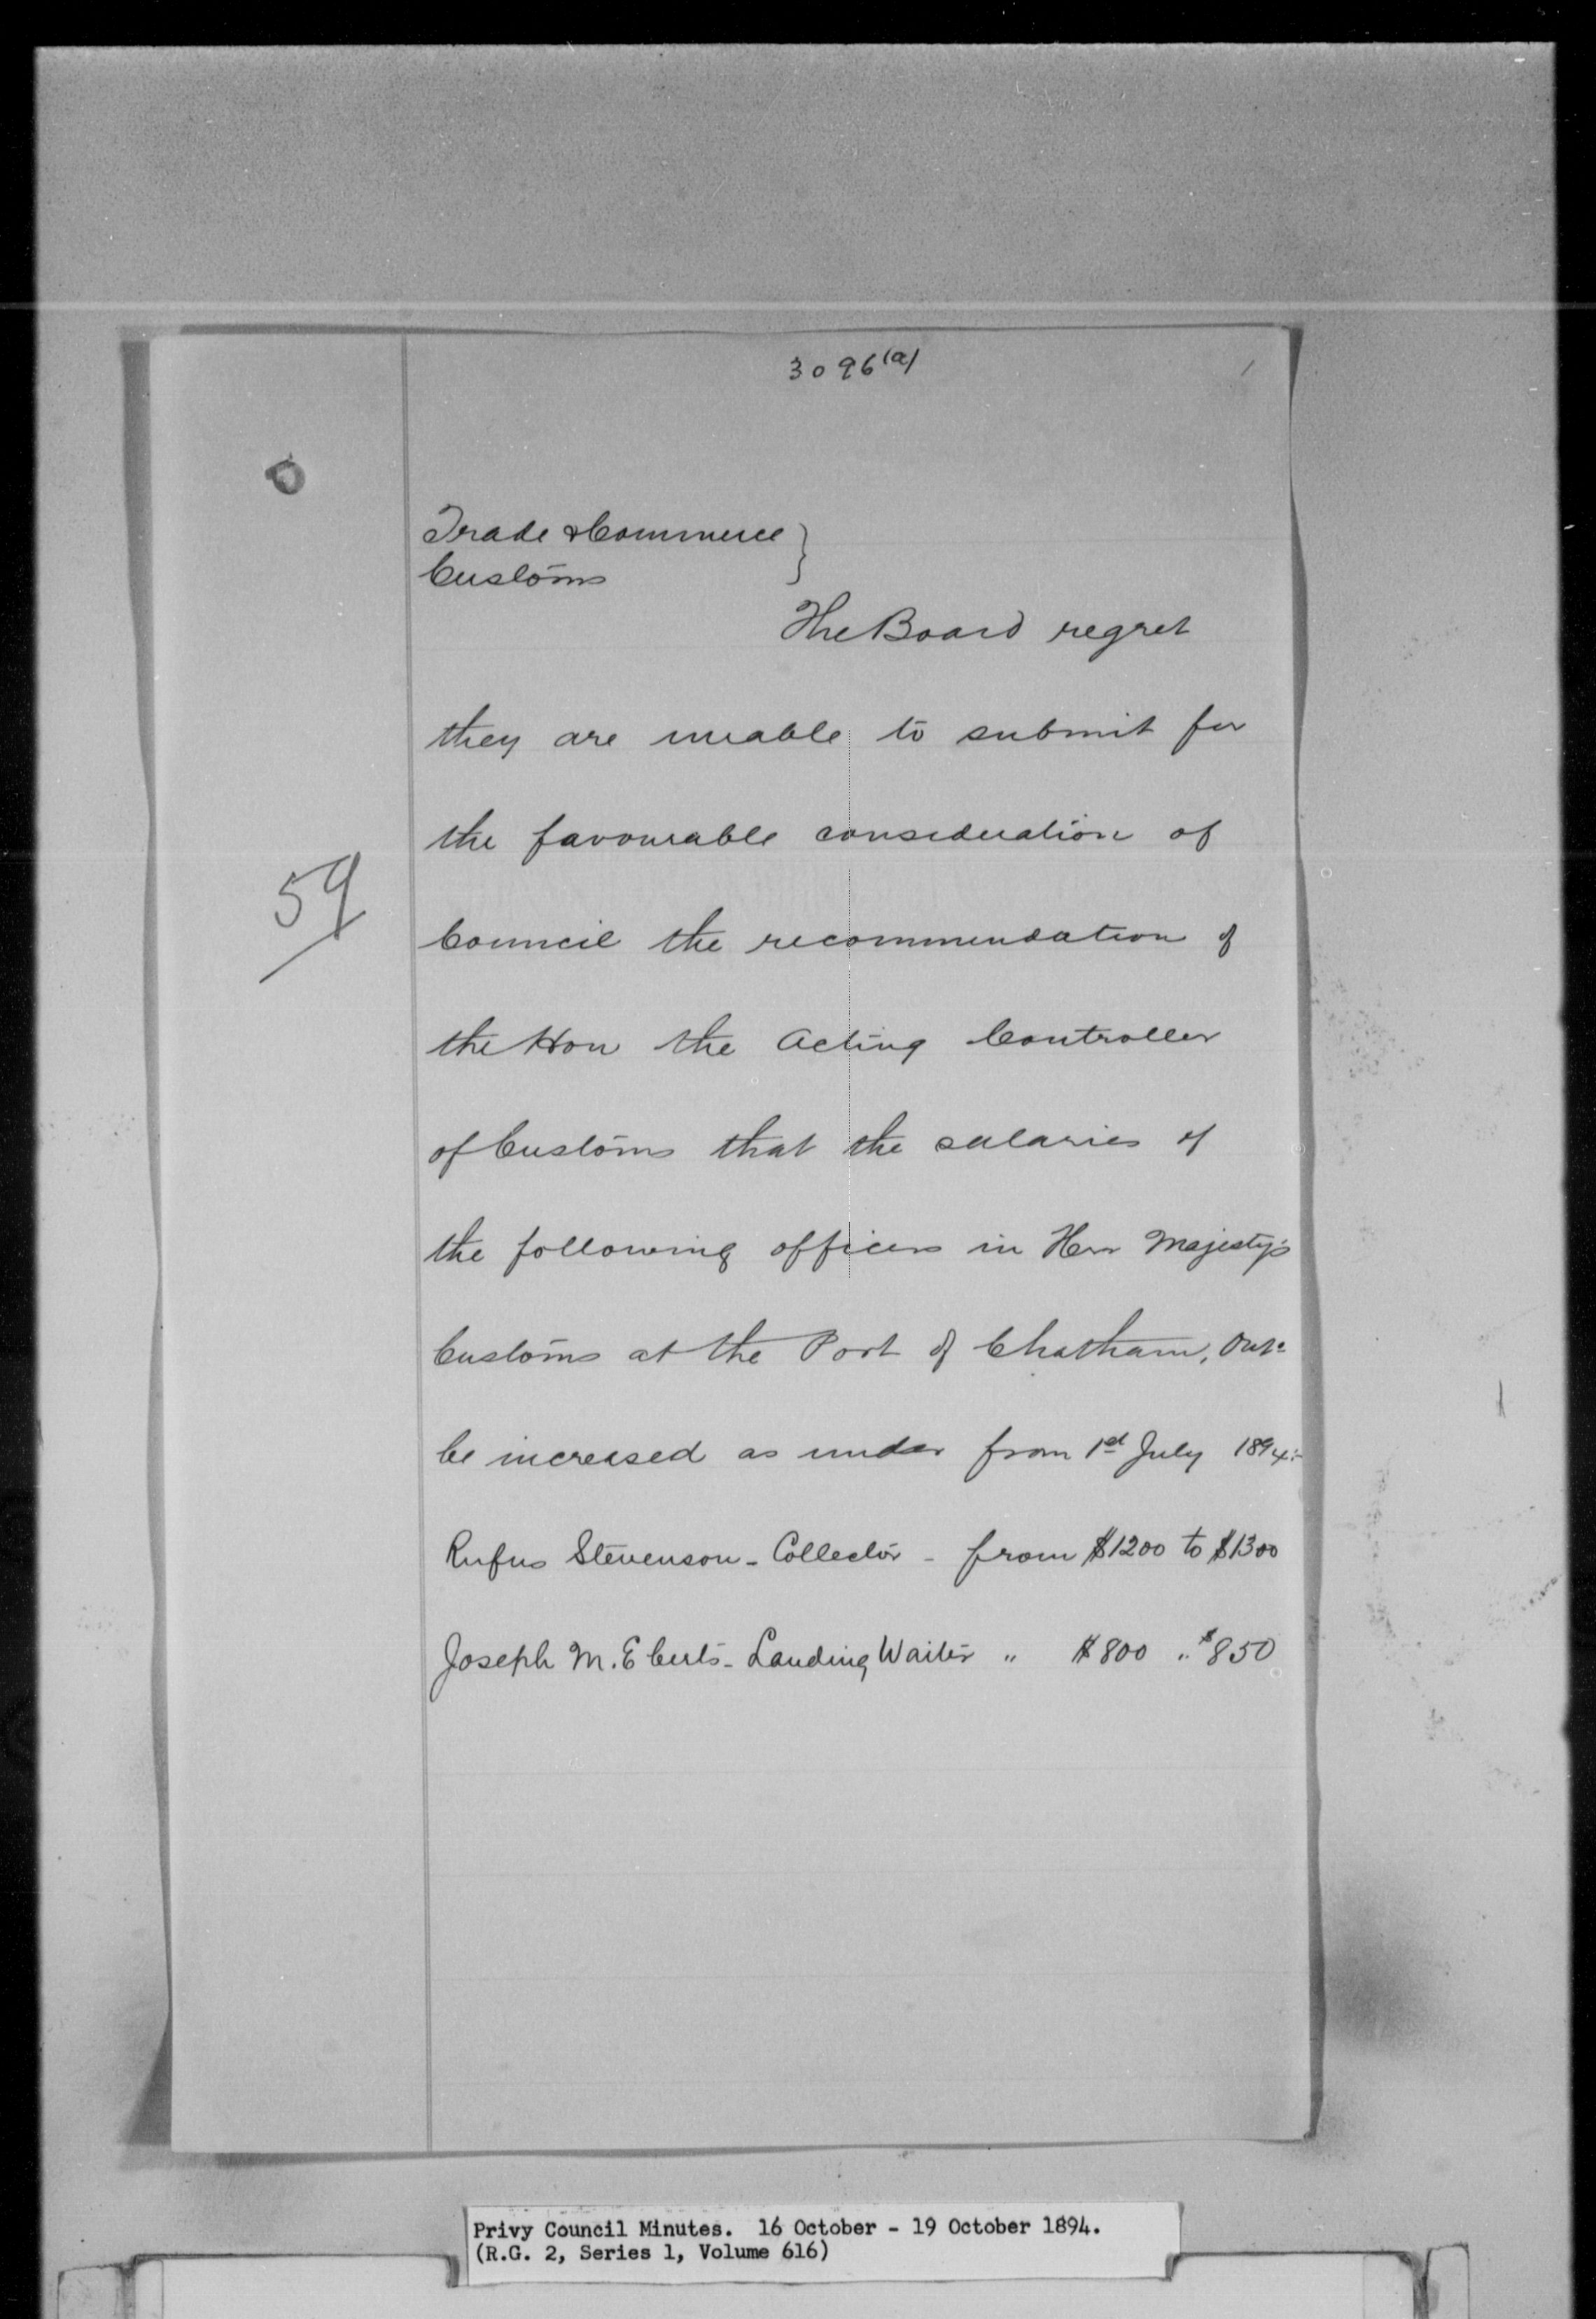 3096(a)
Trade & Commerce }
Customs
The Board regret
they are unable to submit for
the favourable consideration of
59
Council the recommendation of
the Hon the Acting Controller
of Customs that the salaries of
the following officers in Her Majesty's
Customs at the Port of Chatham, Ont:
be increased as under from 1st July 1894:-
Rufus Stevenson - Collector - from $1200 to $1300
Joseph M. Eberts - Landing Waiter " $800 " $850
Privy Council Minutes. 16 October - 19 October 1894.
(R.G. 2, Series 1, Volume 616)